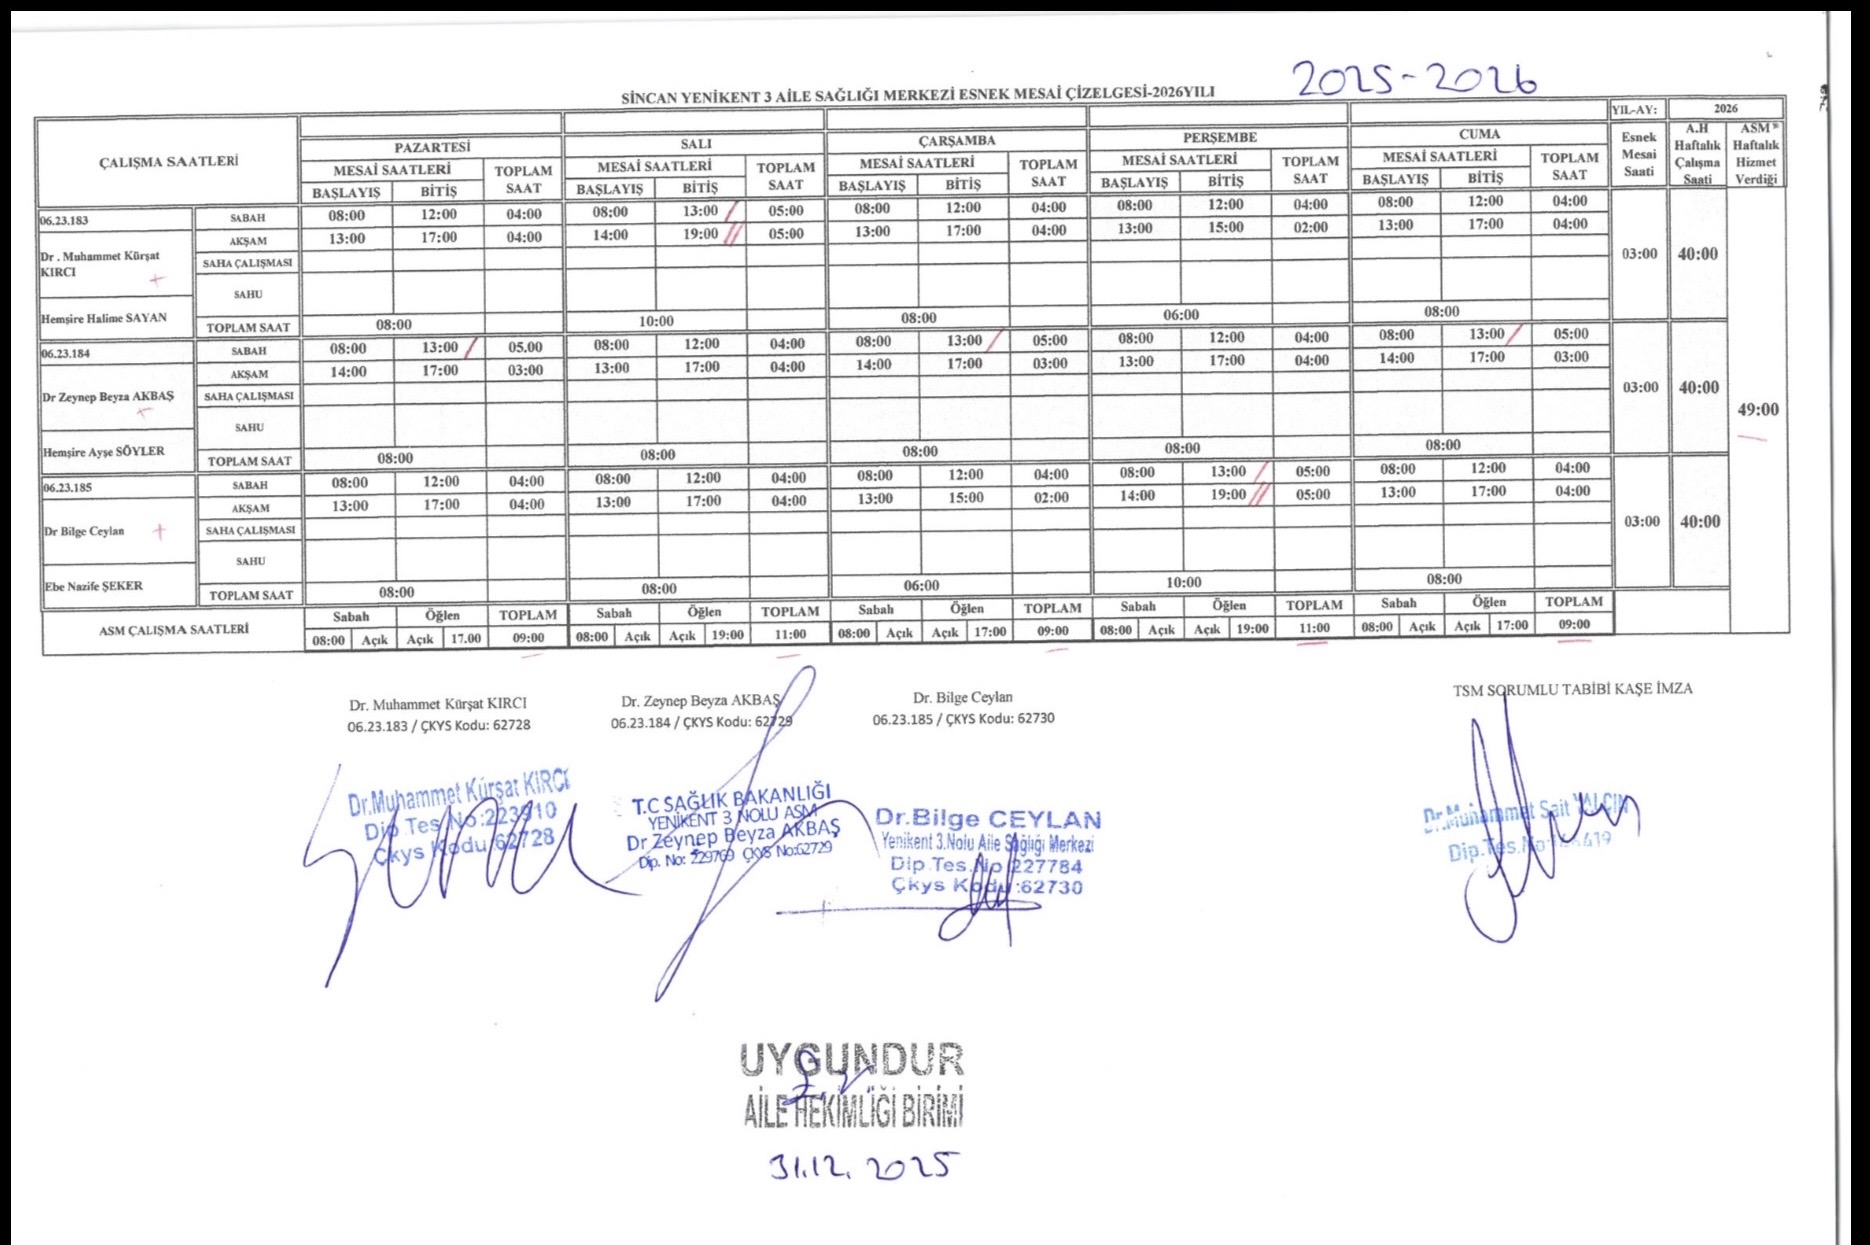 2025-2026
SİNCAN YENİKENT 3 AİLE SAĞLIĞI MERKEZİ ESNEK MESAİ ÇİZELGESİ-2026YILI
YIL-AY: 2026
ÇALIŞMA SAATLERİ PAZARTESİ SALI ÇARŞAMBA PERŞEMBE CUMA Esnek Mesai Saati A.H Haftalık Çalışma Saati ASM* Haftalık Hizmet Verdiği
MESAİ SAATLERİ TOPLAM SAAT MESAİ SAATLERİ TOPLAM SAAT MESAİ SAATLERİ TOPLAM SAAT MESAİ SAATLERİ TOPLAM SAAT MESAİ SAATLERİ TOPLAM SAAT
BAŞLAYIŞ BİTİŞ BAŞLAYIŞ BİTİŞ BAŞLAYIŞ BİTİŞ BAŞLAYIŞ BİTİŞ BAŞLAYIŞ BİTİŞ
06.23.183 SABAH 08:00 12:00 04:00 08:00 13:00 05:00 08:00 12:00 04:00 08:00 12:00 04:00 08:00 12:00 04:00
AKŞAM 13:00 17:00 04:00 14:00 19:00 05:00 13:00 17:00 04:00 13:00 15:00 02:00 13:00 17:00 04:00
Dr . Muhammet Kürşat KIRCI SAHA ÇALIŞMASI 03:00 40:00
SAHU
Hemşire Halime SAYAN TOPLAM SAAT 08:00 10:00 08:00 06:00 08:00
06.23.184 SABAH 08:00 13:00 05.00 08:00 12:00 04:00 08:00 13:00 05:00 08:00 12:00 04:00 08:00 13:00 05:00
AKŞAM 14:00 17:00 03:00 13:00 17:00 04:00 14:00 17:00 03:00 13:00 17:00 04:00 14:00 17:00 03:00
Dr Zeynep Beyza AKBAŞ SAHA ÇALIŞMASI 03:00 40:00 49:00
SAHU
Hemşire Ayşe SÖYLER TOPLAM SAAT 08:00 08:00 08:00 08:00 08:00
06.23.185 SABAH 08:00 12:00 04:00 08:00 12:00 04:00 08:00 12:00 04:00 08:00 13:00 05:00 08:00 12:00 04:00
AKŞAM 13:00 17:00 04:00 13:00 17:00 04:00 13:00 15:00 02:00 14:00 19:00 05:00 13:00 17:00 04:00
Dr Bilge Ceylan SAHA ÇALIŞMASI 03:00 40:00
SAHU
Ebe Nazife ŞEKER TOPLAM SAAT 08:00 08:00 06:00 10:00 08:00
ASM ÇALIŞMA SAATLERİ Sabah Öğlen TOPLAM Sabah Öğlen TOPLAM Sabah Öğlen TOPLAM Sabah Öğlen TOPLAM Sabah Öğlen TOPLAM
08:00 Açık Açık 17.00 09:00 08:00 Açık Açık 19:00 11:00 08:00 Açık Açık 17:00 09:00 08:00 Açık Açık 19:00 11:00 08:00 Açık Açık 17:00 09:00
Dr. Muhammet Kürşat KIRCI
06.23.183 / ÇKYS Kodu: 62728
Dr. Zeynep Beyza AKBAŞ
06.23.184 / ÇKYS Kodu: 62729
Dr. Bilge Ceylan
06.23.185 / ÇKYS Kodu: 62730
TSM SORUMLU TABİBİ KAŞE İMZA
Dr.Muhammet Kürşat KIRCI
Dip Tes No:223910
Çkys Kodu:62728
T.C SAĞLIK BAKANLIĞI
YENİKENT 3 NOLU ASM
Dr Zeynep Beyza AKBAŞ
Dip. No: 229769 ÇKYS No:62729
Dr.Bilge CEYLAN
Yenikent 3.Nolu Aile Sağlığı Merkezi
Dip.Tes.No 227784
Çkys Kodu:62730
Dr.Muhammet Sait YALÇIN
Dip.Tes.No
UYGUNDUR
AİLE HEKİMLİĞİ BİRİMİ
31.12.2025